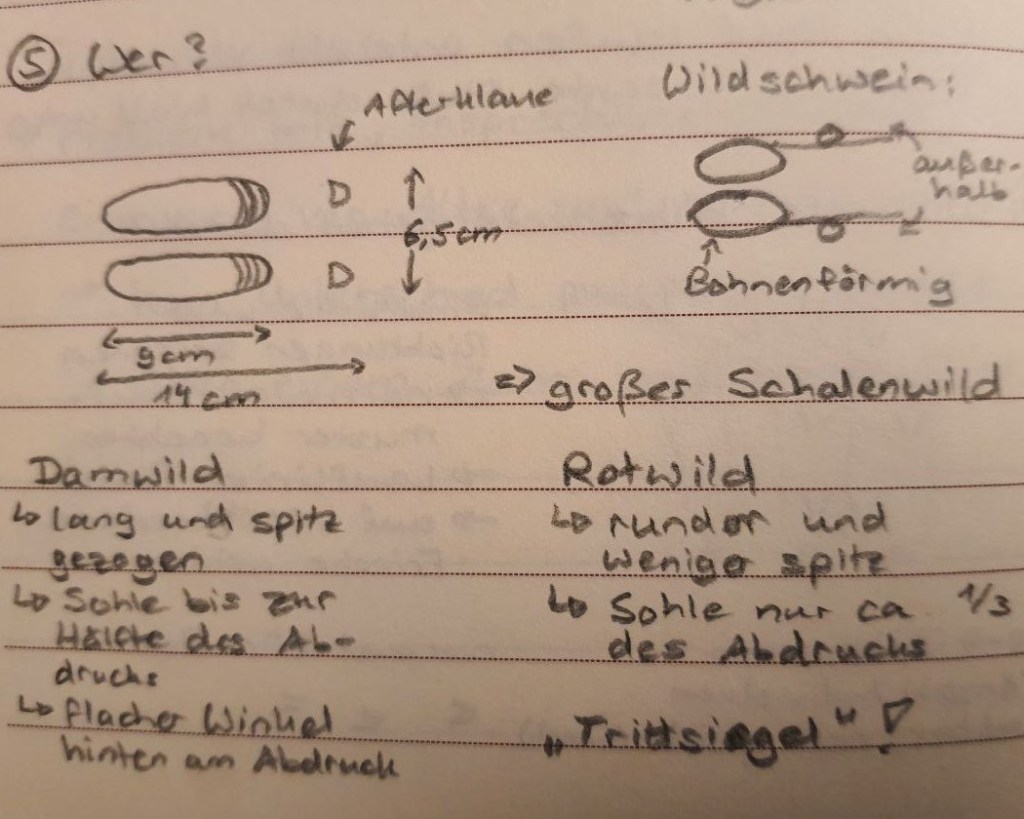 ⑤ Wer?
Afterklaue
6,5cm
9cm
14cm
Wildschwein:
außer-
halb
Bohnenförmig
=> großes Schalenwild
Damwild
↳ lang und spitz
gezogen
↳ Sohle bis zur
Hälfte des Ab-
drucks
↳ flacher Winkel
hinten am Abdruck
Rotwild
↳ runder und
weniger spitz
↳ Sohle nur ca 1/3
des Abdrucks
„Trittsiegel“!